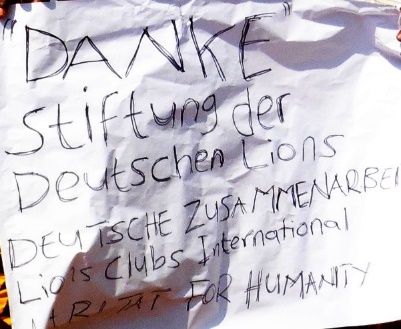 "DANKE"
Stiftung der
Deutschen Lions
DEUTSCHE ZUSAMMENARBEI
Lions Clubs International
ARITÄT FOR HUMANITY